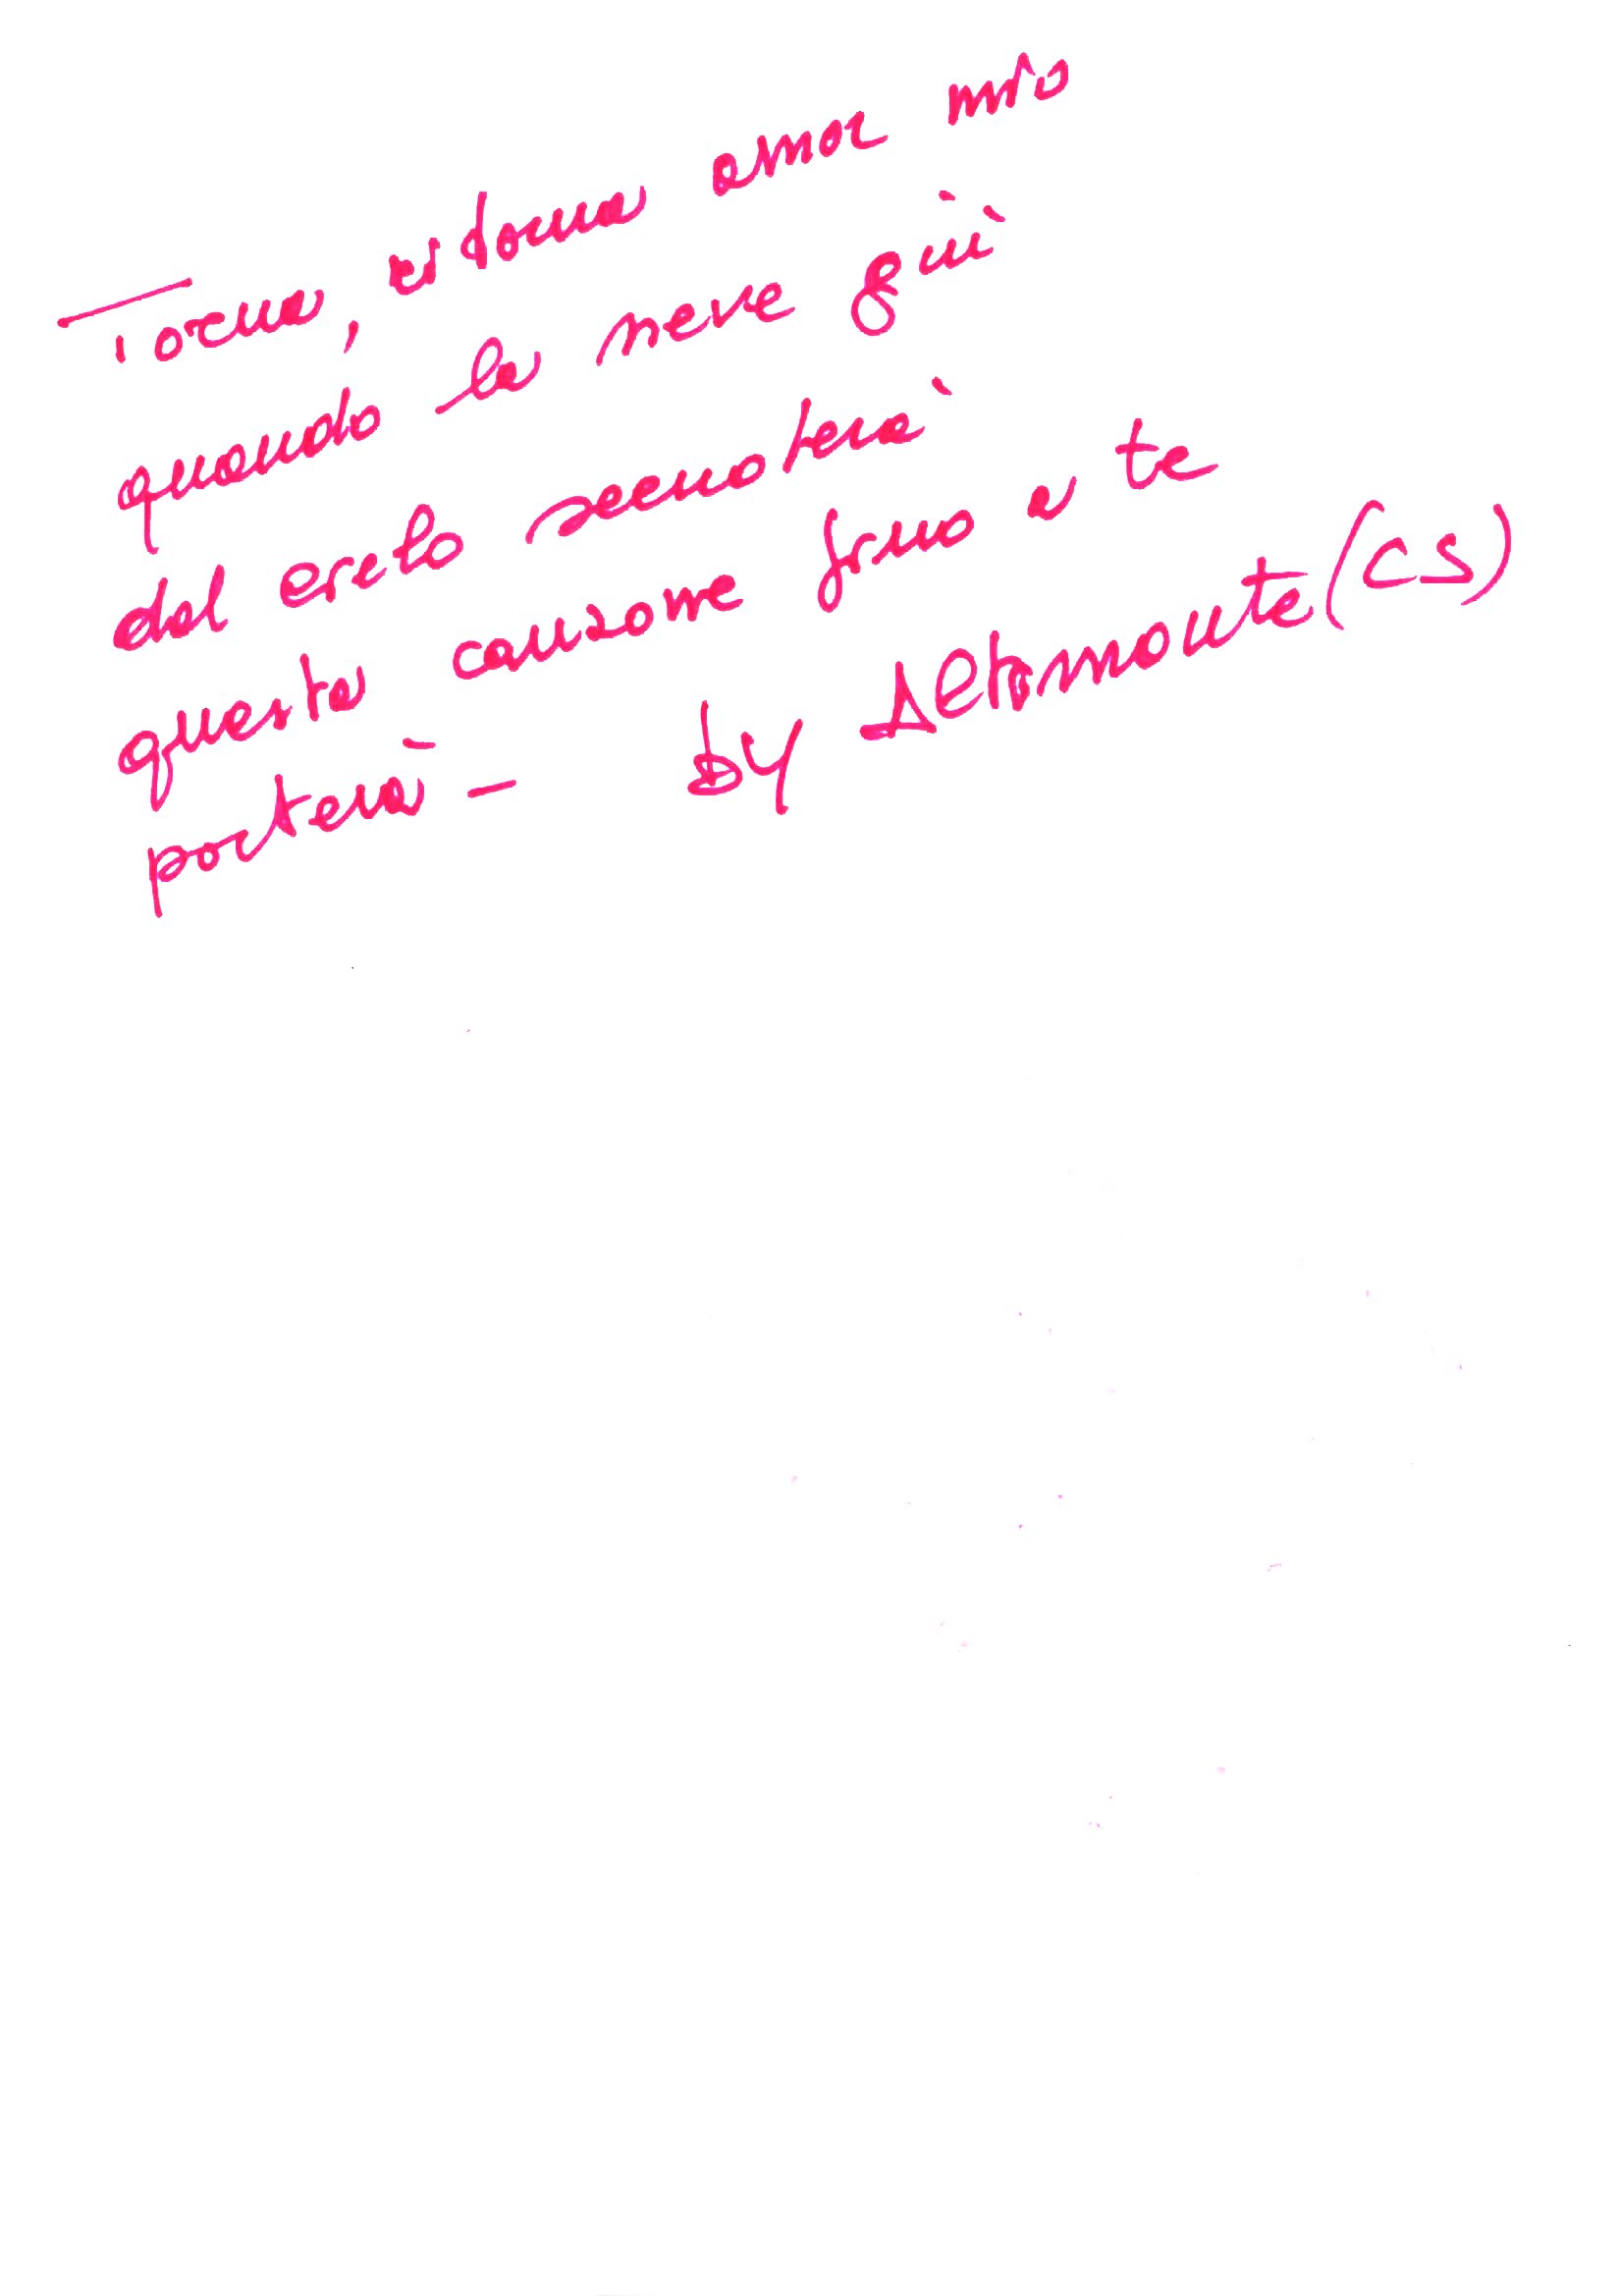 Torna, ritorna amor mio
quando la neve giù
dal cielo scenderà
questa canzone fino a te
porterà - by Altomonte (CS)